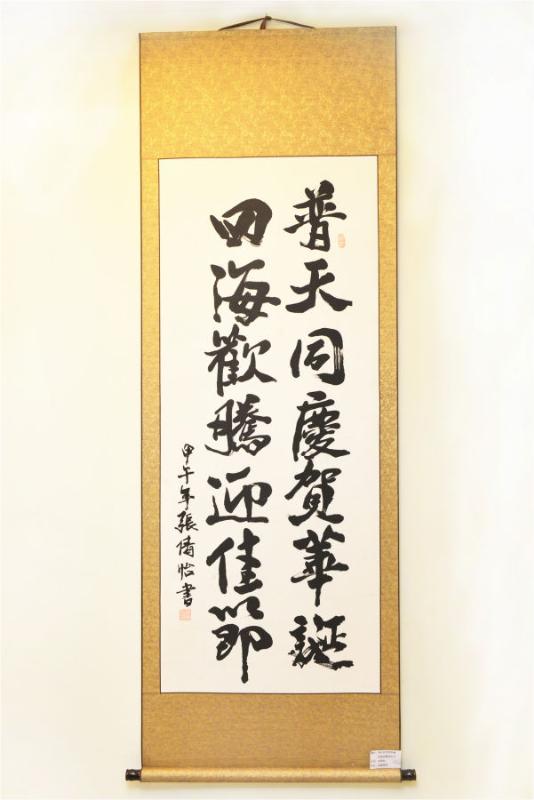 普天同慶賀華誕
四海歡騰迎佳節
甲午年張倩怡書